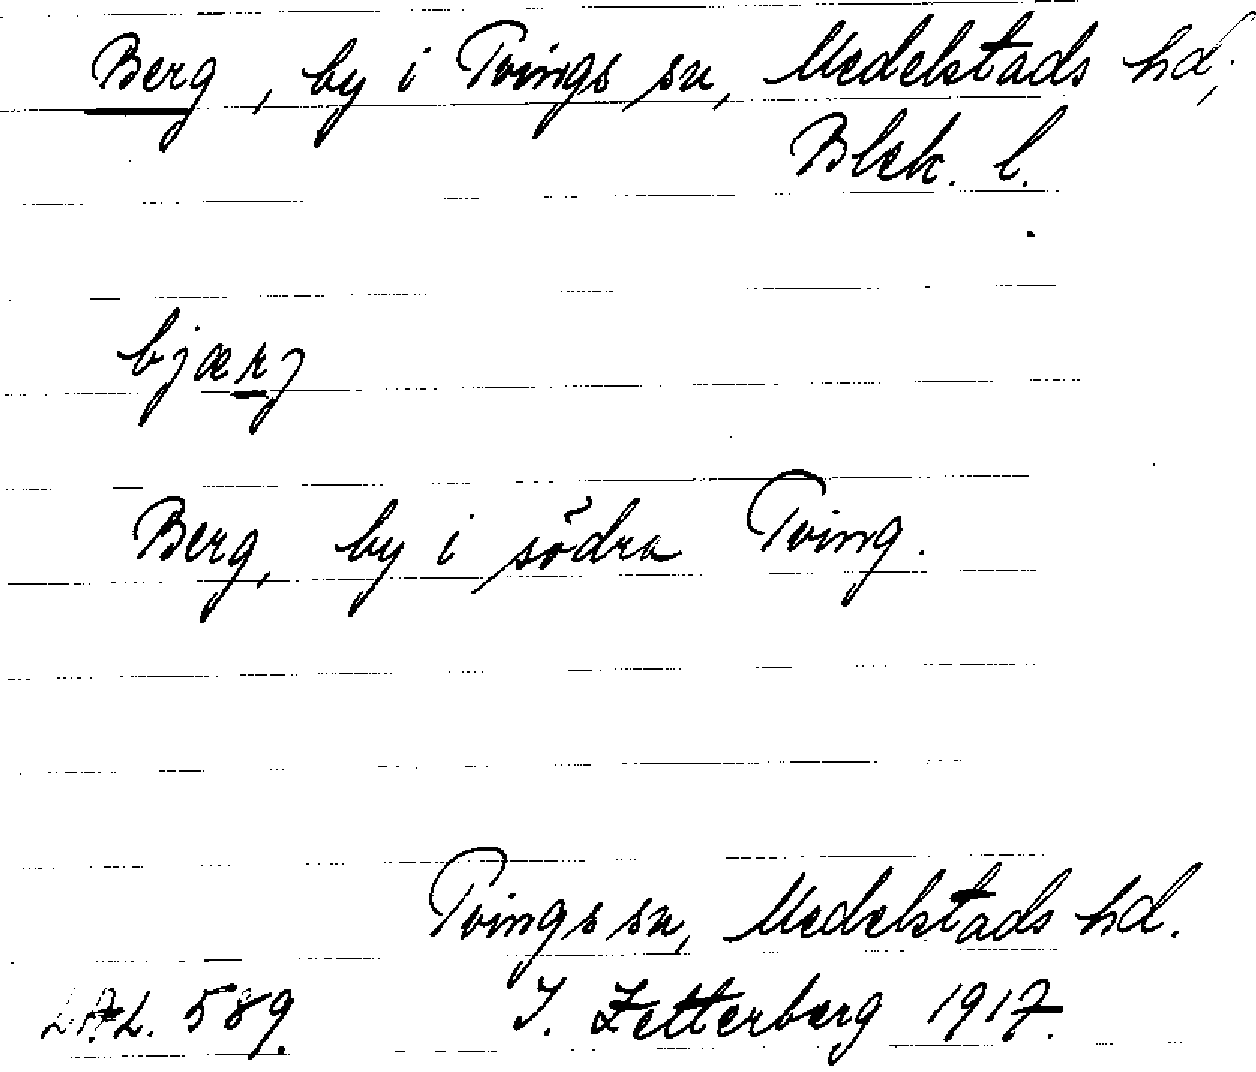 Berg, by i Tvings sn, Medelstads hd,
Blek. l.
bjærj
Berg, by i södra Tving.
Tvings sn, Medelstads hd.
L.A.L. 589. I. Zetterberg 1917.